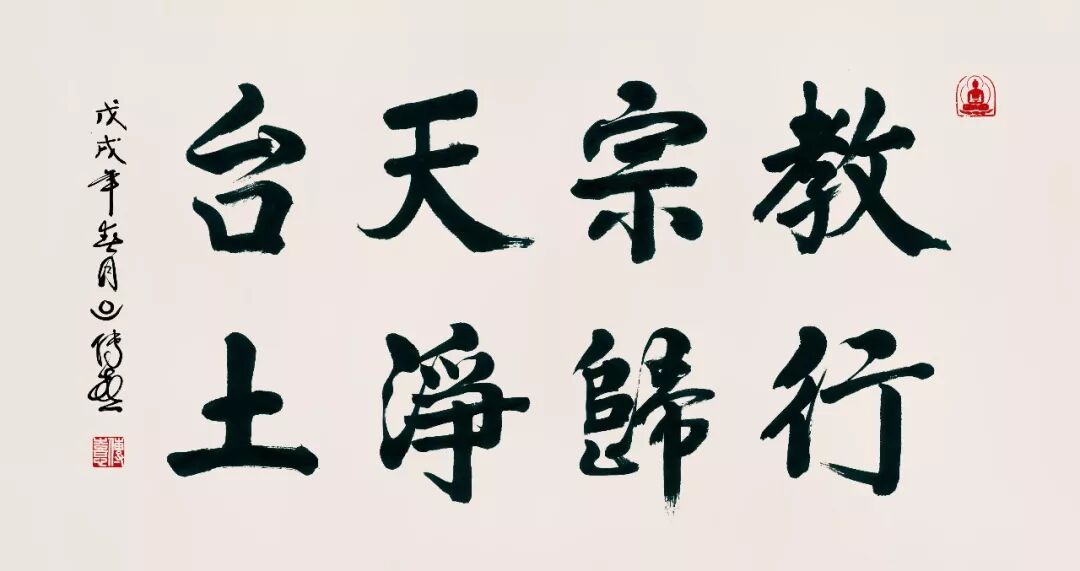 教宗天台
行歸淨土
戊戌年春月傳喜